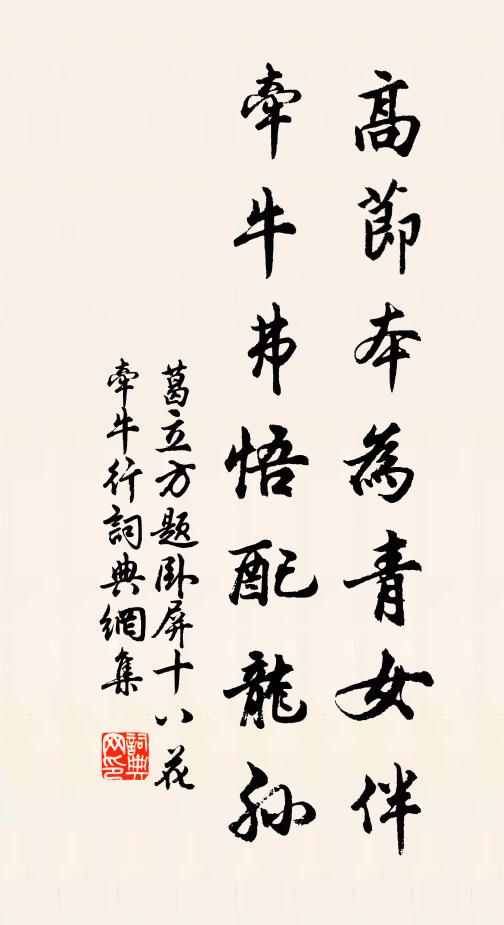 高節本為青女伴
牽牛弗悟配龍孫
葛立方題臥屏十八花
牽牛行詞典網集
詞典网印